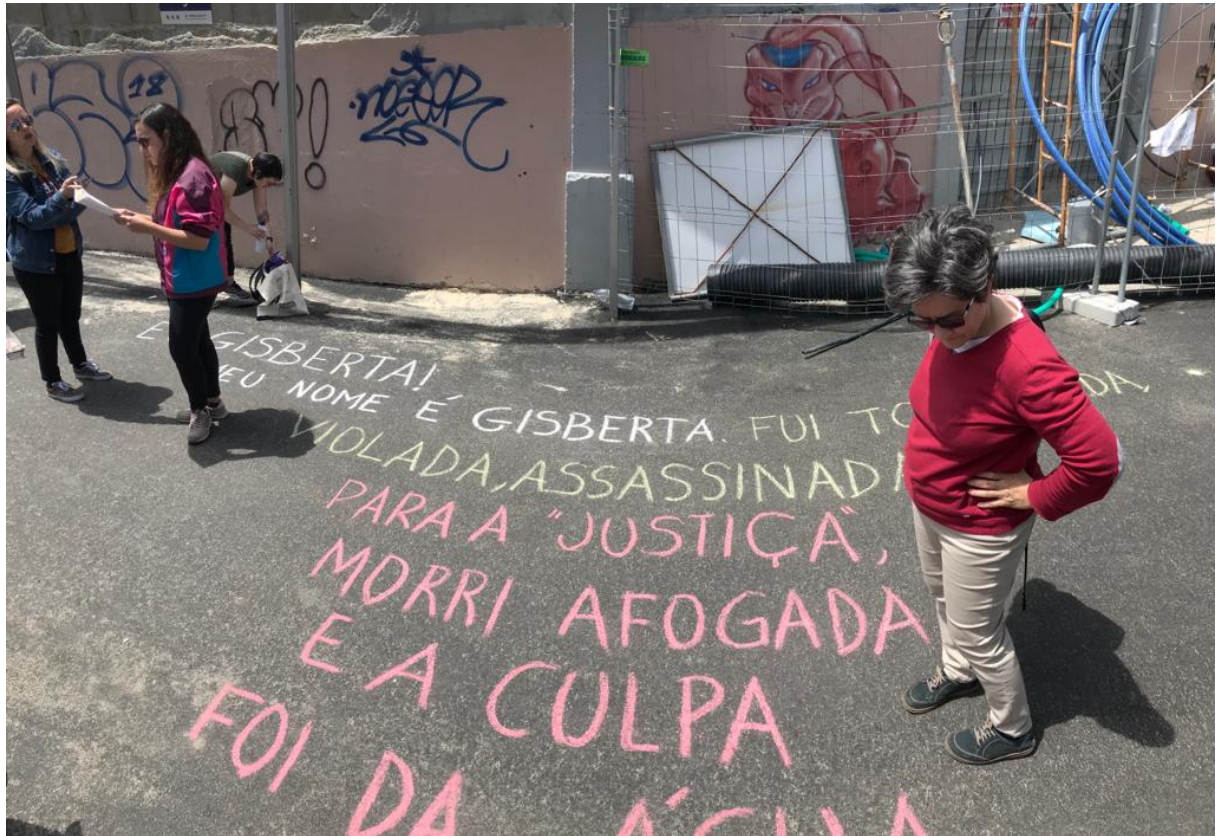 18
GISBERTA!
MEU NOME É GISBERTA. FUI
VIOLADA, ASSASSINADA
PARA A "JUSTIÇA",
MORRI AFOGADA
E A CULPA
FOI DA ÁGUA